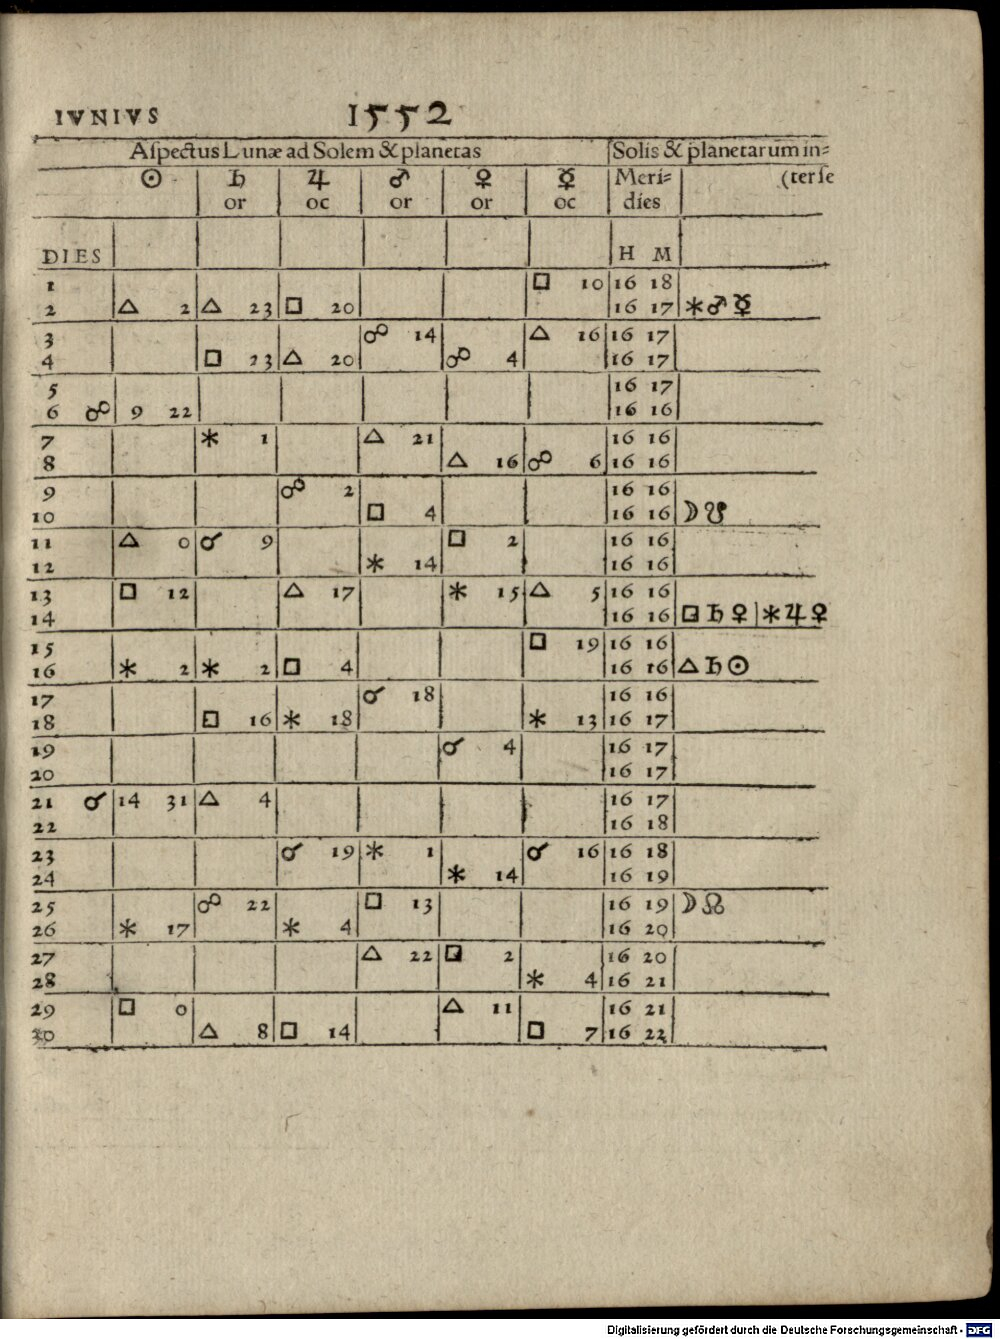 IVNIVS 1552
Aſpectus Lunæ ad Solem & planetas Solis & planetarum in=
☉ ♄ ♃ ♂ ♀ ☿ Meri= (ter ſe
or oc or or oc dies
DIES H M
1 □ 10 16 18
2 △ 2 △ 23 □ 20 16 17 ⚹ ♂ ☿
3 ☍ 14 △ 16 16 17
4 □ 23 △ 20 ☍ 4 16 17
5 16 17
6 ☍ 9 22 16 16
7 ⚹ 1 △ 21 16 16
8 △ 16 ☍ 6 16 16
9 ☍ 2 16 16
10 □ 4 16 16 ☽ ☋
11 △ 0 ☌ 9 □ 2 16 16
12 ⚹ 14 16 16
13 □ 12 △ 17 ⚹ 15 △ 5 16 16
14 16 16 □ ♄ ♀ | ⚹ ♃ ♀
15 □ 19 16 16
16 ⚹ 2 ⚹ 2 □ 4 16 16 △ ♄ ☉
17 ☌ 18 16 16
18 □ 16 ⚹ 18 ⚹ 13 16 17
19 ☌ 4 16 17
20 16 17
21 ☌ 14 31 △ 4 16 17
22 16 18
23 ☌ 19 ⚹ 1 ☌ 16 16 18
24 ⚹ 14 16 19
25 ☍ 22 □ 13 16 19 ☽ ☊
26 ⚹ 17 ⚹ 4 16 20
27 △ 22 □ 2 16 20
28 ⚹ 4 16 21
29 □ 0 △ 11 16 21
30 △ 8 □ 14 □ 7 16 22
Digitalisierung gefördert durch die Deutsche Forschungsgemeinschaft - DFG